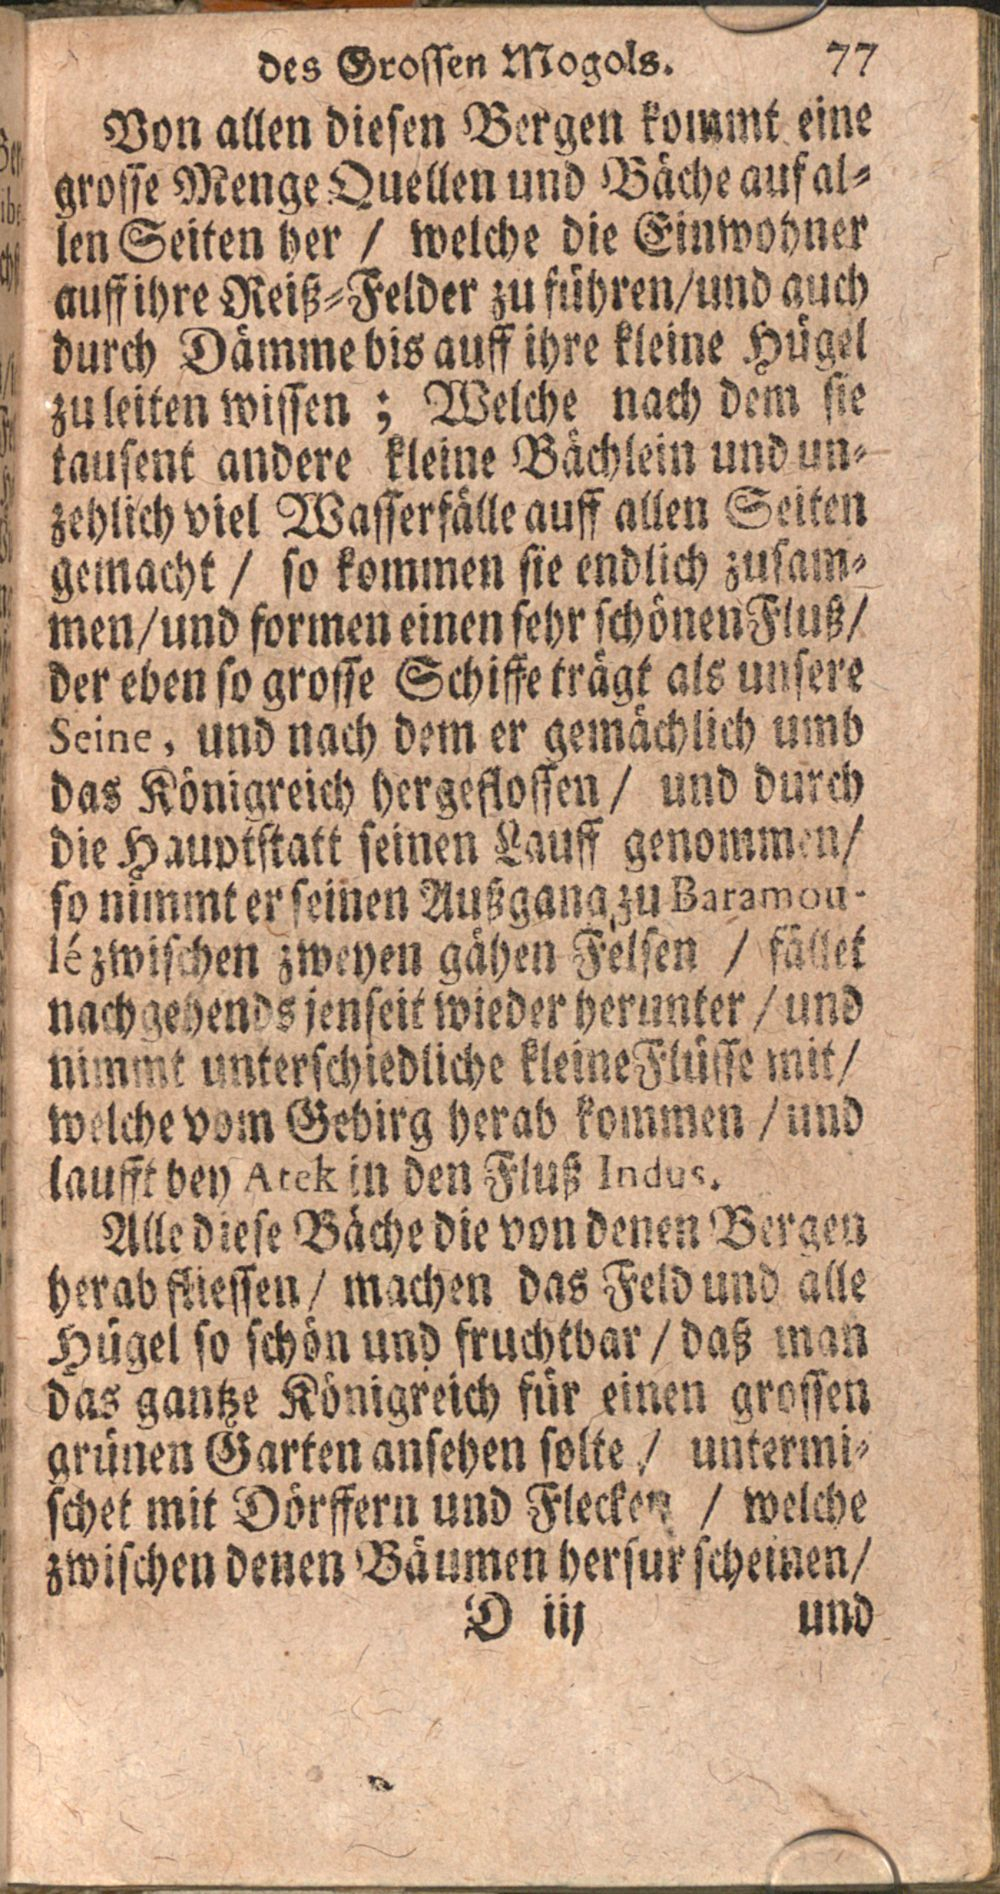 des Grossen Mogols. 77
Von allen diesen Bergen kommt eine
grosse Menge Quellen und Bäche auf al-
len Seiten her / welche die Einwohner
auff ihre Reiß-Felder zu führen/und auch
durch Dämme bis auff ihre kleine Hügel
zu leiten wissen ; Welche nach dem sie
tausent andere kleine Bächlein und un-
zehlich viel Wasserfälle auff allen Seiten
gemacht / so kommen sie endlich zusam-
men/und formen einen sehr schönen Fluß/
der eben so grosse Schiffe trägt als unsere
Seine, und nach dem er gemächlich umb
das Königreich hergeflossen / und durch
die Hauptstatt seinen Lauff genommen/
so nimmt er seinen Außgang zu Baramou-
lé zwischen zweyen gähen Felsen / fället
nachgehends jenseit wieder herunter / und
nimmt unterschiedliche kleine Flüsse mit/
welche vom Gebirg herab kommen / und
laufft bey Atek in den Fluß Indus.
Alle diese Bäche die von denen Bergen
herab fliessen/ machen das Feld und alle
Hügel so schön und fruchtbar / daß man
das gantze Königreich für einen grossen
grünen Garten ansehen solte / untermi-
schet mit Dörffern und Flecken / welche
zwischen denen Bäumen herfur scheinen/
D iij und